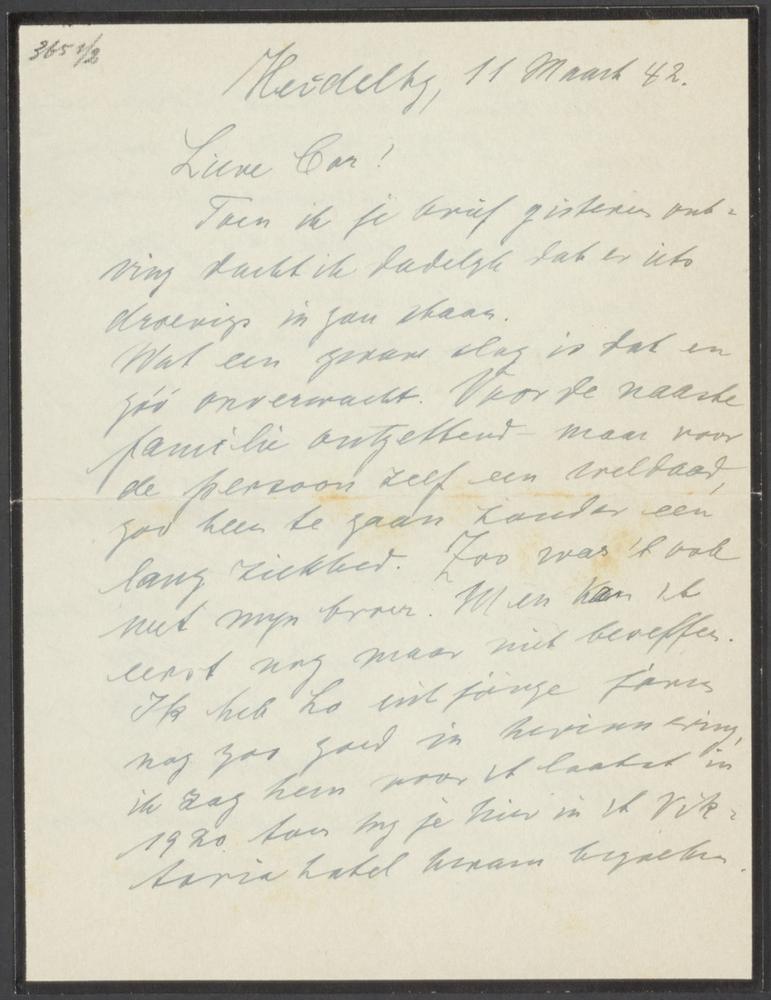 365 1/2
Heidelbg, 11 Maart 42.
Lieve Cor!
Toen ik je brief gisteren ont-
ving dacht ik dadelijk dat er iets
droevigs in zou staan.
Wat een zware slag is dat en
zóó onverwacht. Voor de naaste
familie ontzettend - maar voor
de persoon zelf een weldaad,
zoo heen te gaan zonder een
lang ziekbed. Zoo was 't ook
met mijn broer. Men kan 't
eerst nog maar niet beseffen.
Ik heb uit jonge jaren
nog zoo goed in herinnering,
ik zag hem voor 't laatst in
1920 toen hij je hier in 't Vik-
toria hotel kwam